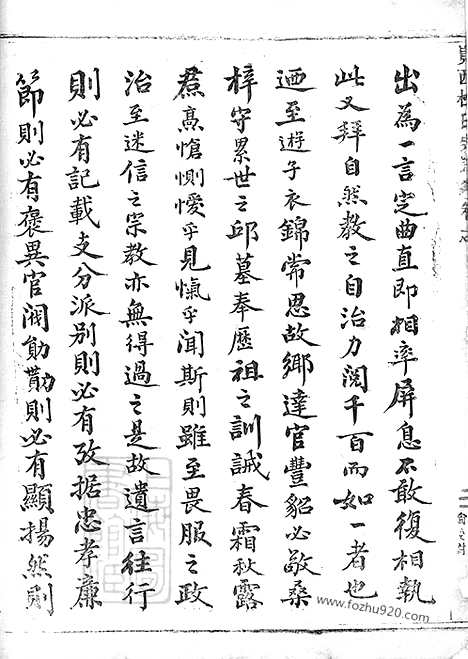 出為一言定曲直即相率屏息不敢復相執
此又拜自然教之自治力閱千百而如一者也
迺至遊子衣錦常思故鄉達官豐貂必敬桑
梓守累世之邱墓奉歷祖之訓誡春霜秋露
焄蒿愴惻僾乎見愾乎聞斯則雖至畏服之政
治至迷信之宗教亦無得過之是故遺言往行
則必有記載支分派別則必有攷据忠孝廉
節則必有褒異官閥勛勩則必有顯揚然則
www.fozhu920.com